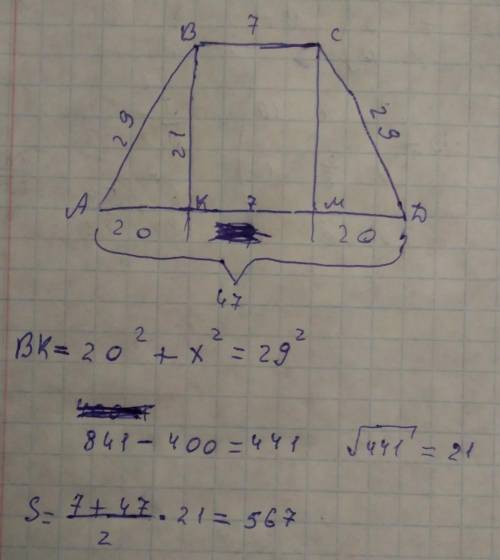 7
B C
29 21 29
A K 7 M D
20 20
47
BK = 20² + x² = 29²
841 - 400 = 441 √441 = 21
S = (7 + 47)/2 · 21 = 567